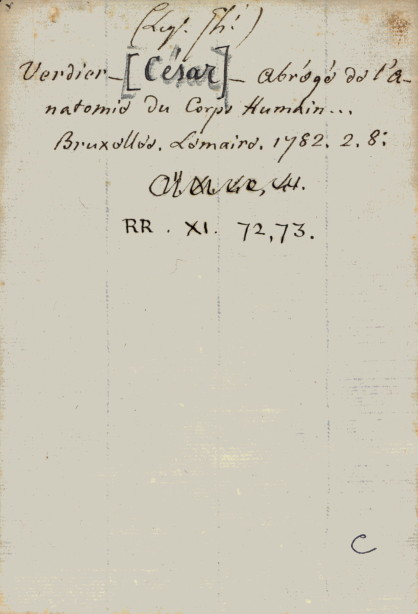 Verdier — [César] — Abrégé de l'A-
natomie du Corps Humain...
Bruxelles. Lemaire. 1782. 2. 8:
RR. XI. 72, 73.
C